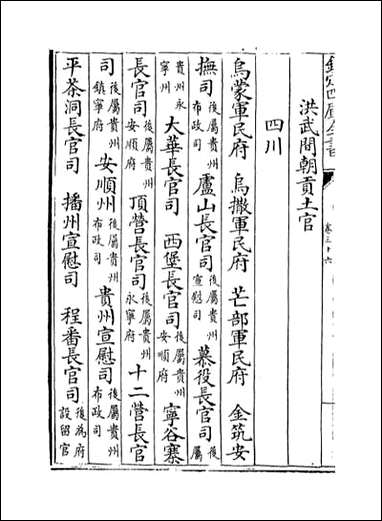 欽定四庫全書
卷三十六
洪武間朝貢土官
四川
烏蒙軍民府 烏撒軍民府 芒部軍民府 金筑安
撫司 後屬貴州布政司 盧山長官司 後屬貴州宣慰司 慕役長官司 後屬
貴州永寧州 大華長官司 西堡長官司 後屬貴州安順府 寧谷寨
長官司 後屬貴州安順府 頂營長官司 後屬貴州永寧府 十二營長官
司 後屬貴州鎮寧府 安順州 後屬貴州布政司 貴州宣慰司 後屬貴州布政司
平茶洞長官司 播州宣慰司 程番長官司 後為府設留官